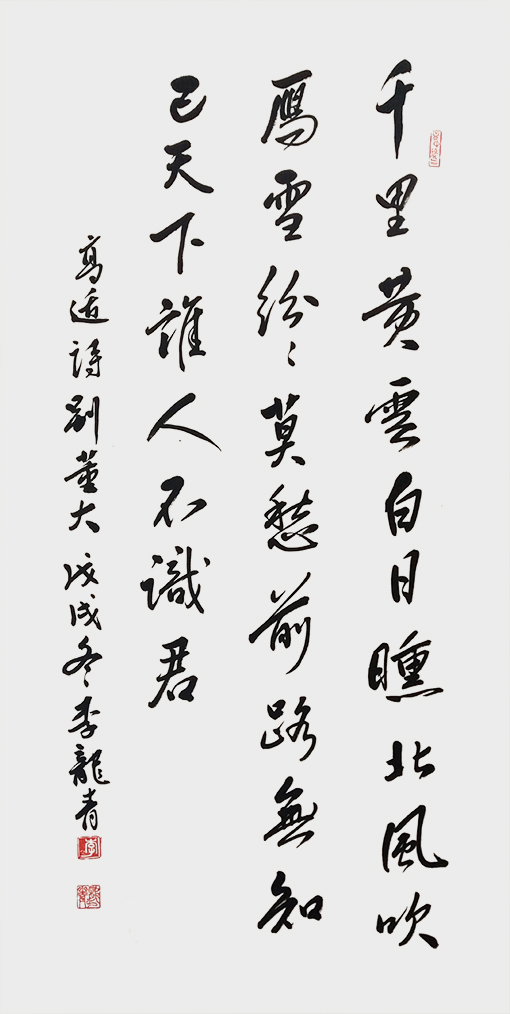 千里黄雲白日曛北風吹
雁雪紛〻莫愁前路無知
己天下誰人不識君
高適詩別董大 戊戌冬 李龍青
李